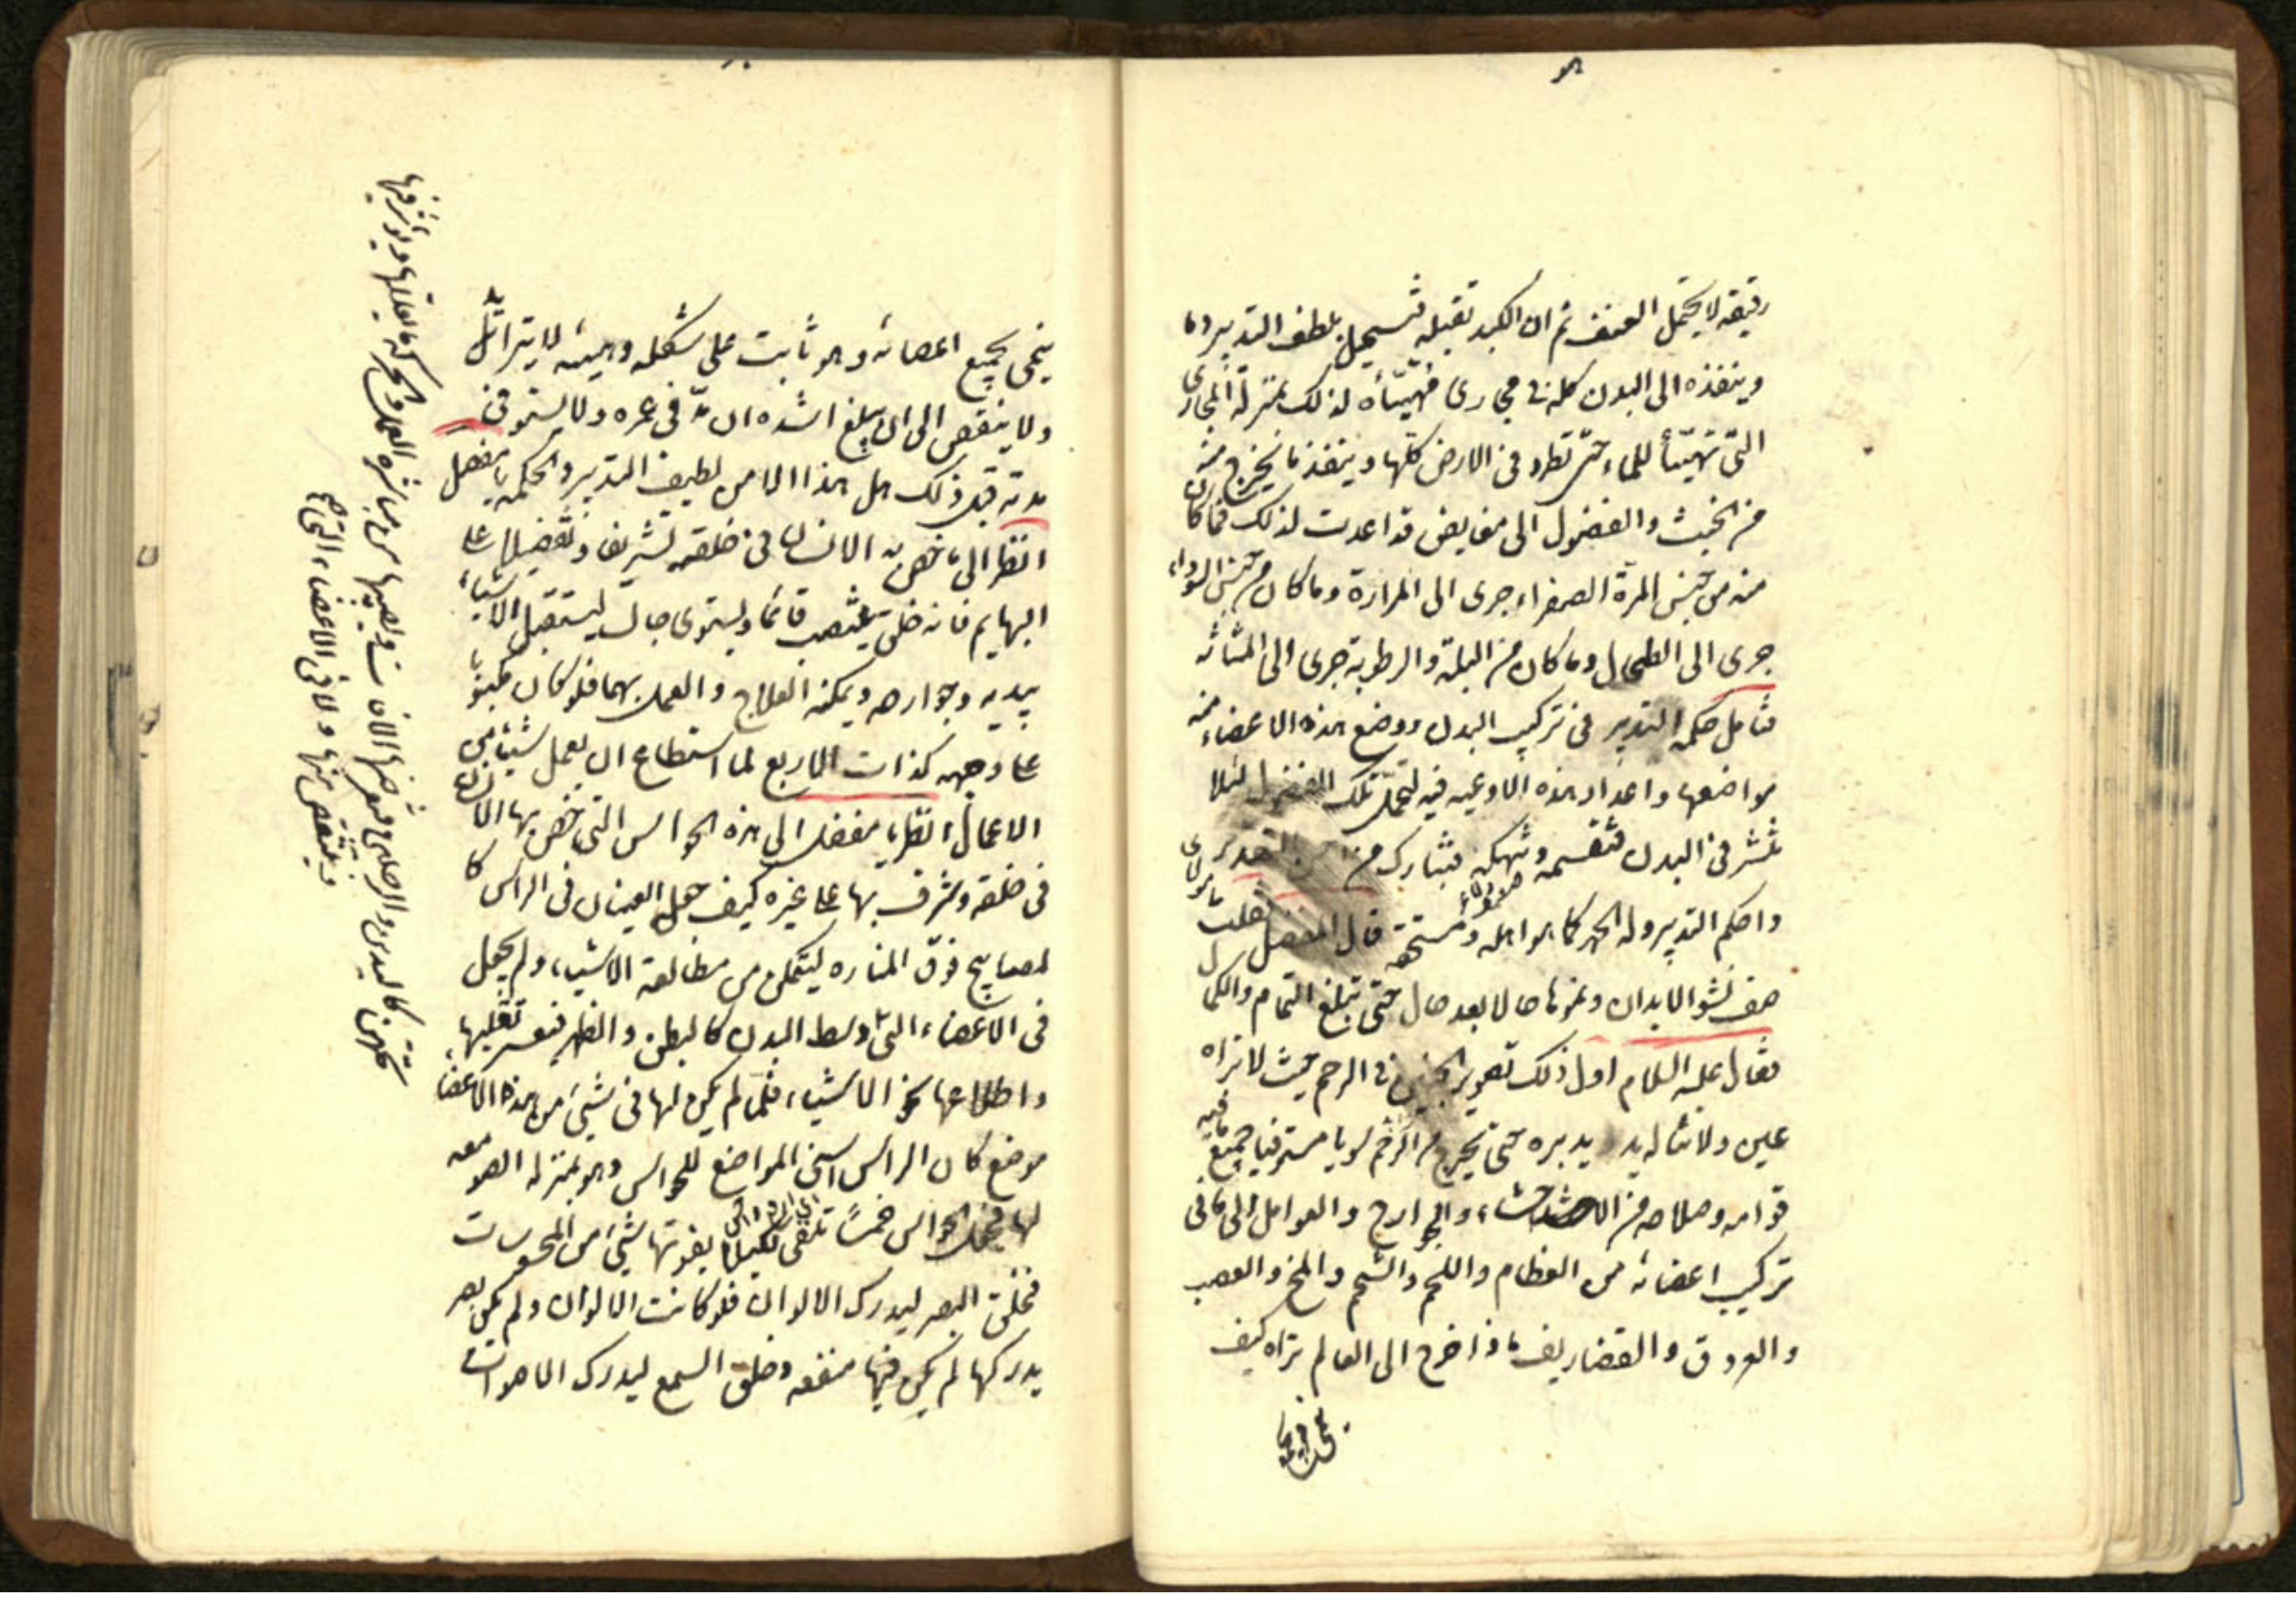 رقيقه لا يحتمل العنف ثم ان الكبد تقبله فتسحيل بلطف التدبير دما
وينفذه الى البدن كله فى مجارى مهيّئاه لذلك بمنزلة المجارى
التى تهيّيأ للماء حتى تطرد فى الارض كلها وينفذ ما يخرج منه
من الخبث والفضول الى مفايض قد اعدت لذلك فما كان
منه من جنس المرة الصفراء جرى الى المرارة وما كان من جنس السوداء
جرى الى الطحال وما كان من البلة والرطوبة جرى الى المثانه
فتامل حكمه التدبير فى تركيب البدن ووضع هذه الاعضاء منه
مواضعها واعداد هذه الاوعيه فيه لتحمل تلك الفضول لئلا
تنتشر فى البدن فتسقمه وتنهكه فتبارك من احسن التقدير
واحكم التدبير وله الحمد كما هو اهله ومستحقه قال المفضل فقلت
صف نشو الابدان ونموها حالا بعد حال حتى تبلغ التمام والكمال
فقال عليه السلام اول ذلك تصوير الجنين فى الرحم حيث لا تراه
عين ولا تناله يد يدبره حتى يخرج من الرحم سويا مستوفيا جميع ما فيه
قوامه وصلاحه من الاحشاء والجوارح والعوامل الى ما فى
تركيب اعضائه من العظام واللحم والشحم والمخ والعصب
والعروق والغضاريف فاذا خرج الى العالم تراه كيف
ينمى بجميع اعضائه وهو ثابت على شكله وهيئه لا يتزايد
ولا ينقص الى ان يبلغ اشده ان مدّ فى عمره ولا يستوفى
مدته قبل ذلك هل هذا الا من لطيف التدبير والحكمه يا مفضل
انظر الى ما خص به الانسان فى خلقه تشريفا وتفضيلا على
البهايم فانه خلق ينتصب قائما ويستوى جالسا ليستقبل الاشياء
بيديه وجوارحه ويمكنه العلاج والعمل بهما فلو كان مكبوبا
على وجهه كذات الاربع لما استطاع ان يعمل شيئا من
الاعمال انظر يا مفضل الى هذه الحواس التى خص بها الانسان
فى خلقه وشرف بها على غيره كيف جعل العينان فى الراس كا
لمصابيح فوق المناره ليتمكن من مطالعة الاشياء ولم يجعل
فى الاعضاء التى وسط البدن كالبطن والظهر فيعسر تقلبها
واطلاعها نحو الاشياء فلما لم يكن لها فى شيئ من هذه الاعضاء
موضع كان الراس اسنى المواضع للحواس وهو بمنزله الصومعه
لها فجعل الحواس خمسًا تلقى خمسًا لكيلا يفوتها شيئ من المحسوسات
فخلق البصر ليدرك الالوان فلو كانت الالوان ولم يكن بصر
يدركها لم يكن فيها منفعه وخلق السمع ليدرك الاصوات